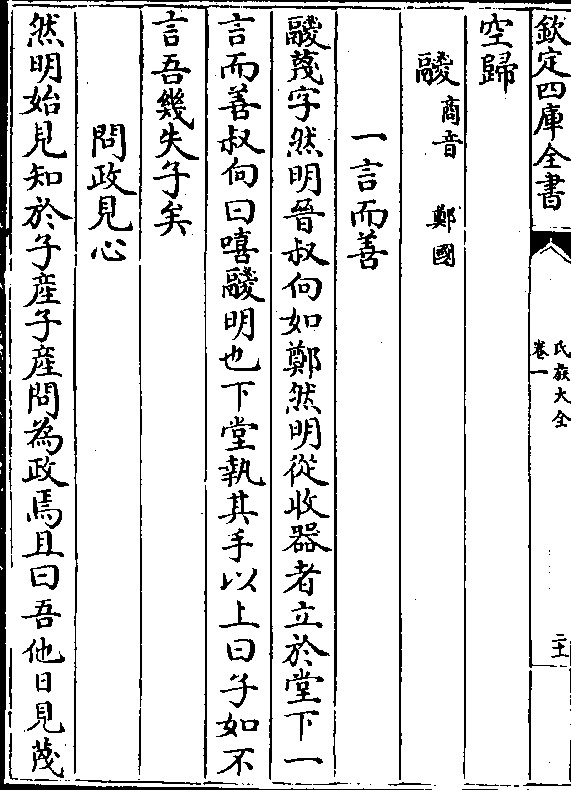 欽定四庫全書
氏族大全
卷一
二十
空歸
鬷商音 鄭國
一言而善
鬷蔑字然明晉叔向如鄭然明從收器者立於堂下一
言而善叔向曰嘻鬷明也下堂執其手以上曰子如不
言吾幾失子矣
問政見心
然明始見知於子産子産問為政焉且曰吾他日見蔑